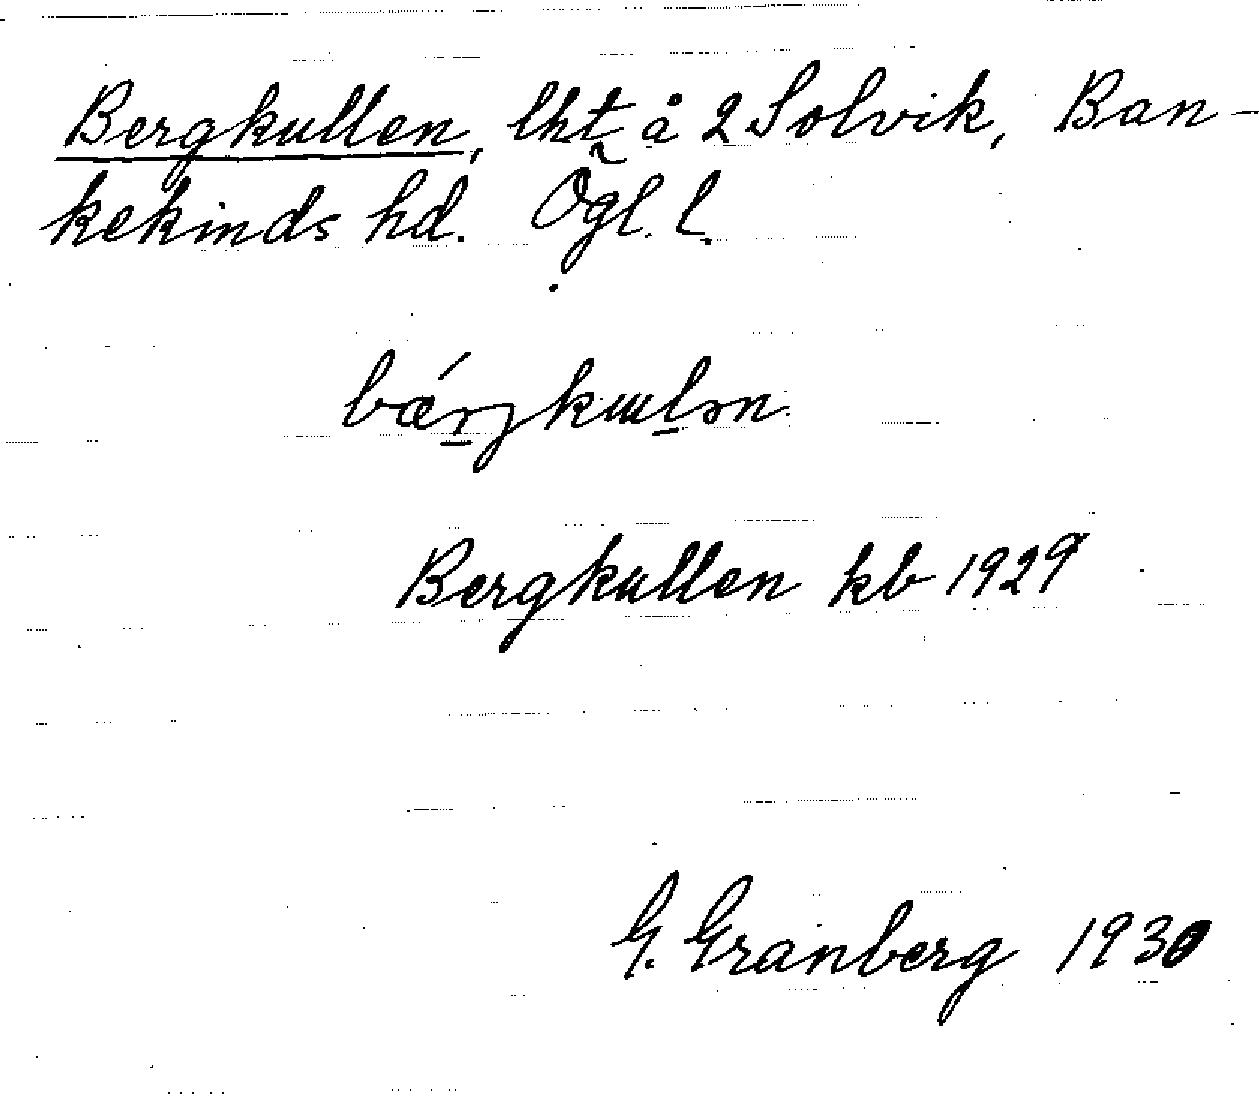 Bergkullen, lht å 2 Solvik, Ban-
kekinds hd. Ögl. l.
bǽrjkɯlən
Bergkullen kb 1929
G. Granberg 1930